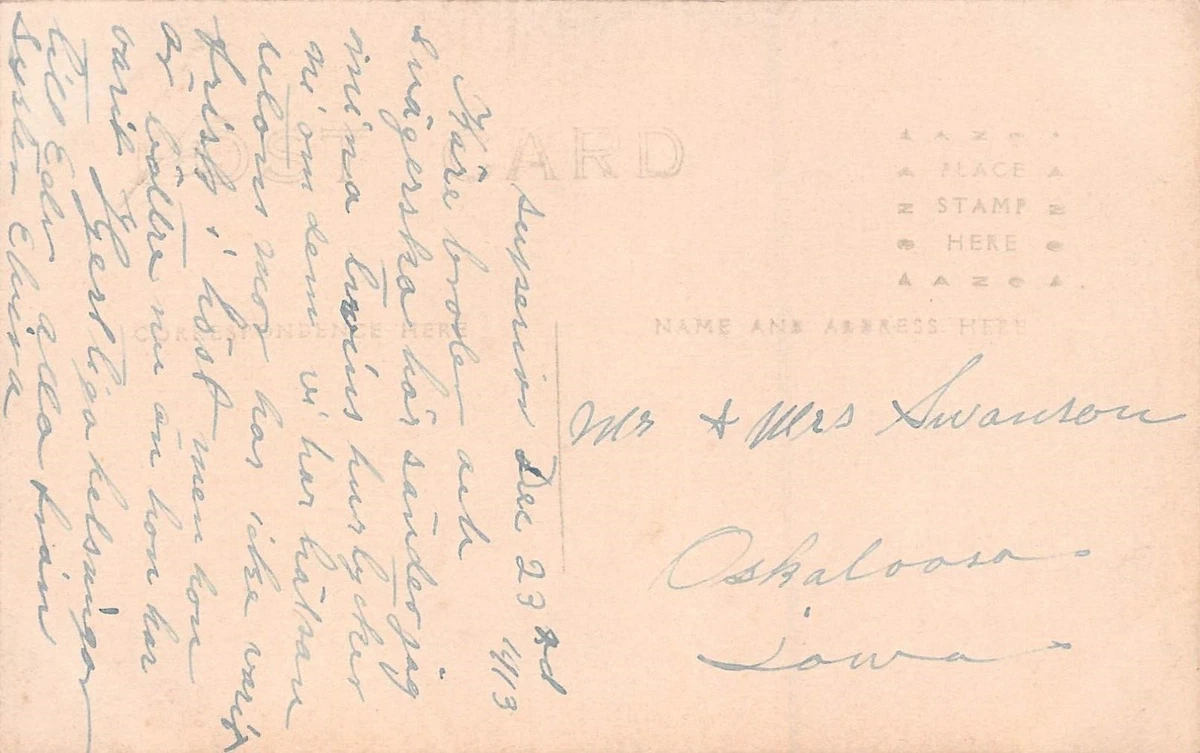 POST CARD
AZO
PLACE
STAMP
HERE
AZO
CORRESPONDENCE HERE
NAME AND ADDRESS HERE
Superior Dec 23rd
1913
Käre broder och
svägerska här sänder jag
mina hur lycker
ni om dem vi har hälsan
utom mor har icke varit
frisk i höst men hon
är bättre nu än hon har
varit Hjertliga helsningar
till Eder alla från
Syster Elvira
Mr & Mrs Swanson
Oskaloosa
Iowa